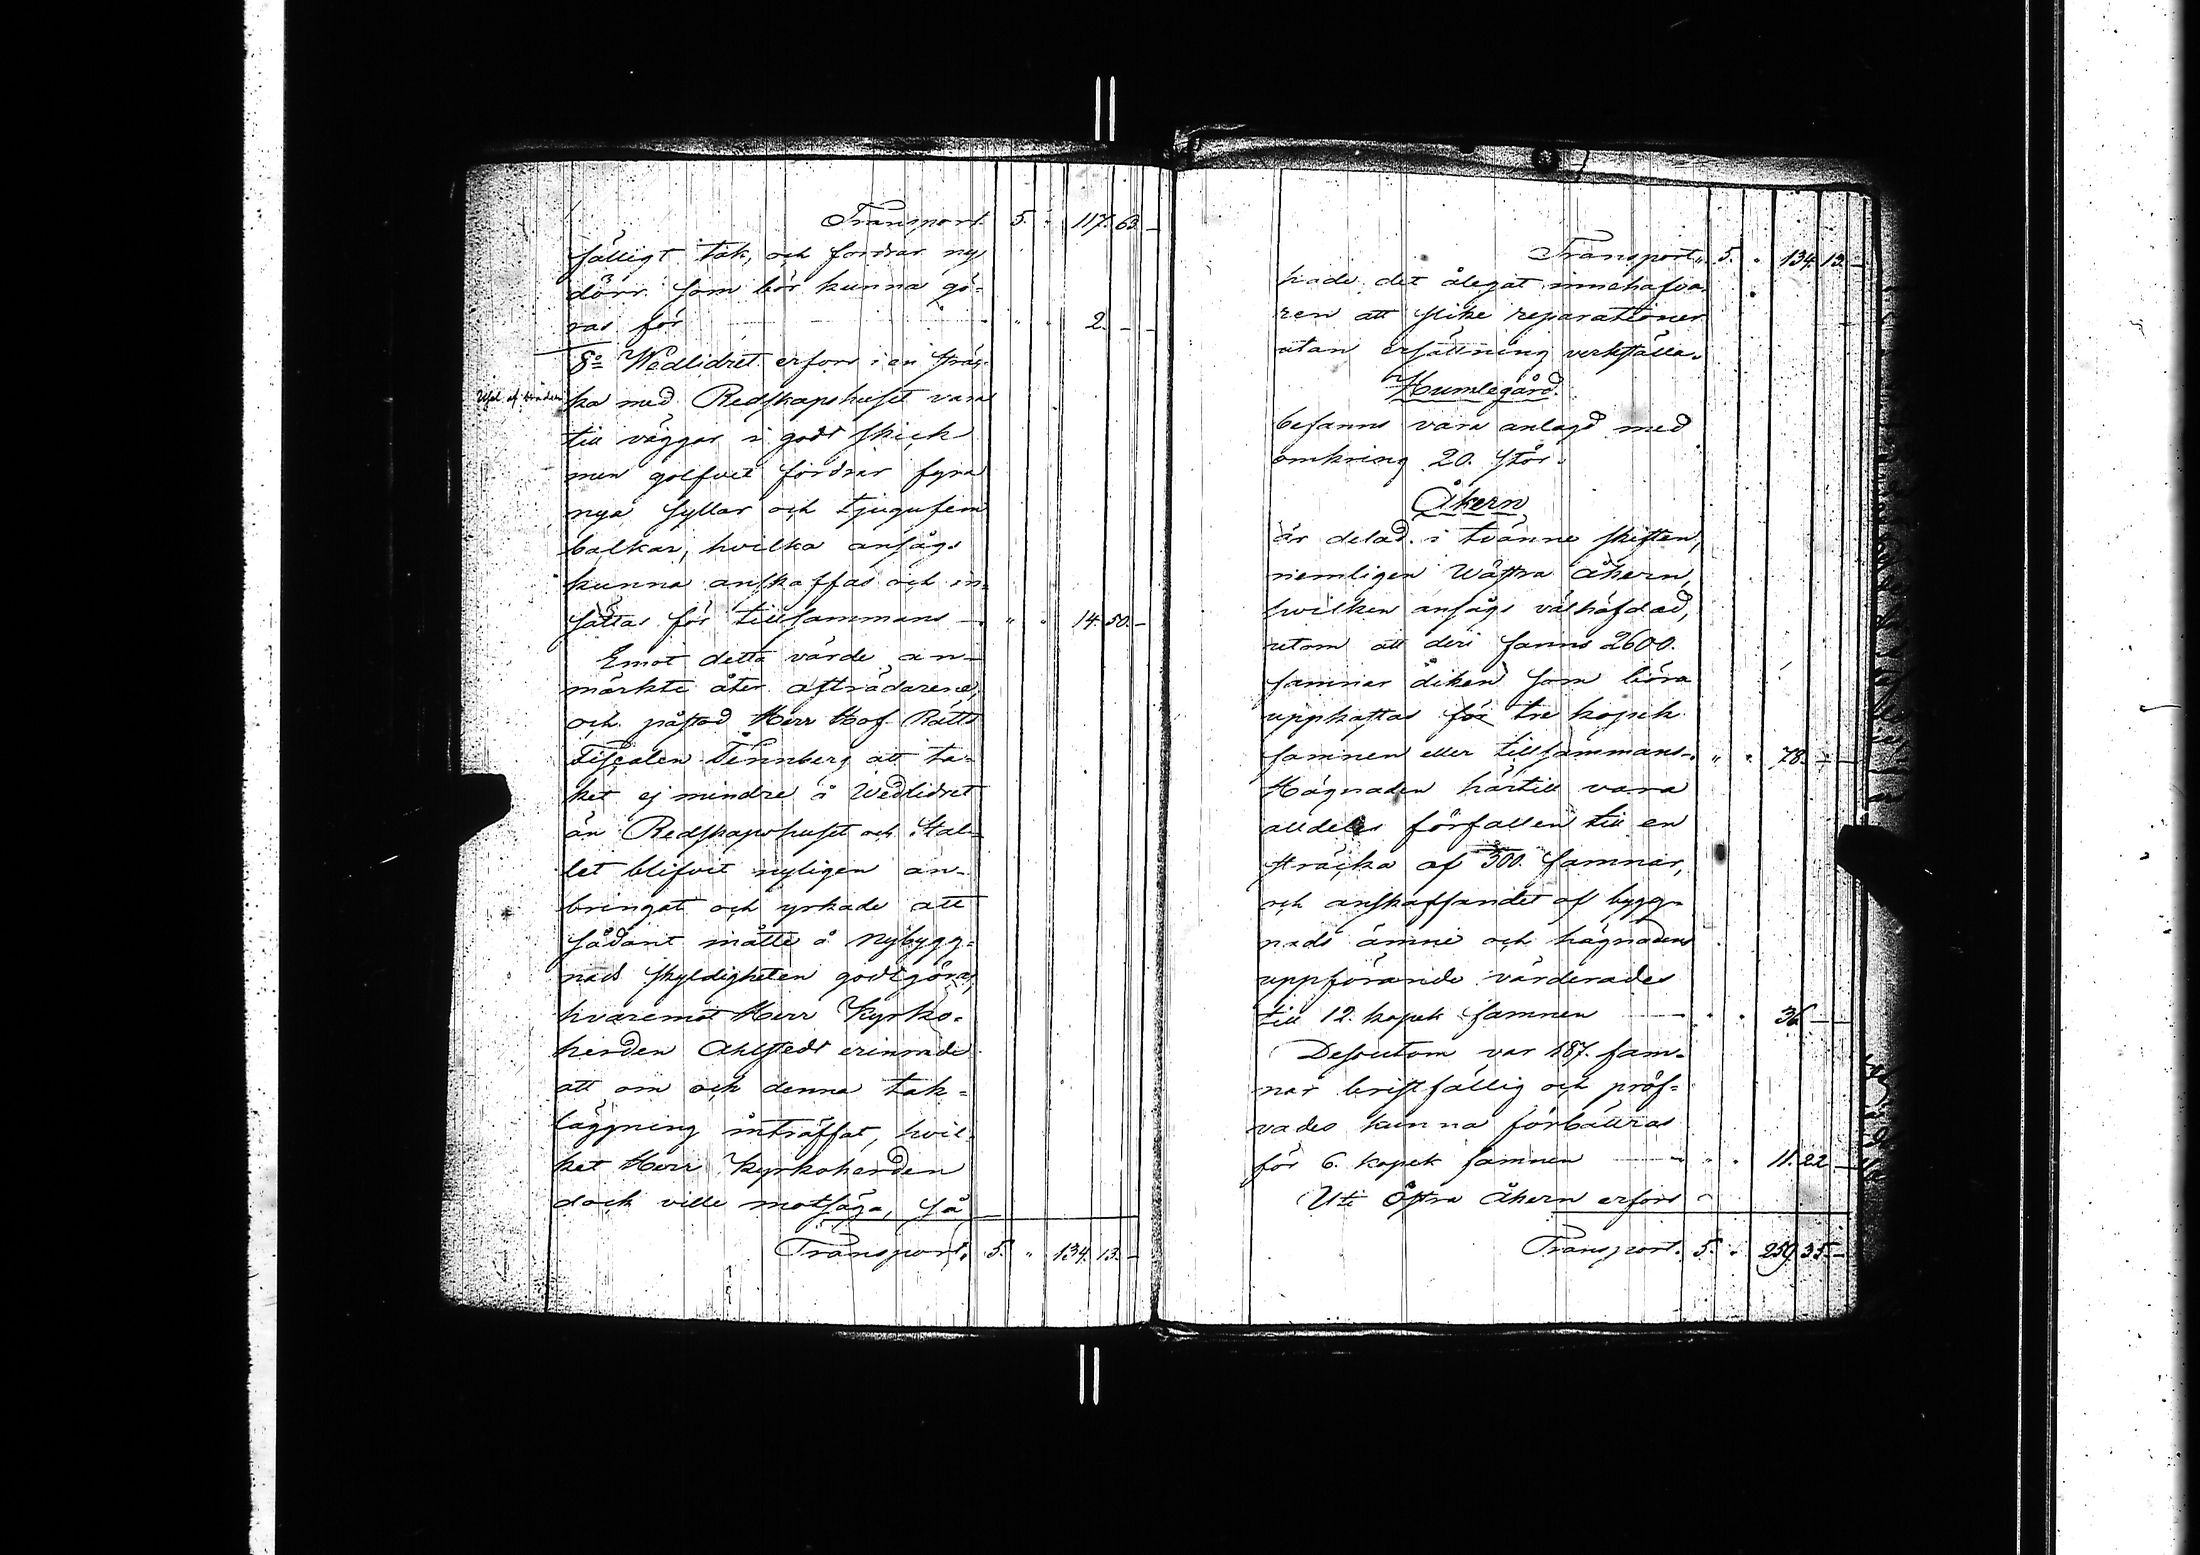 Transport. 5. " 117. 63. —
fälligt tak, och fordrar ny
dörr som bör kunna gö-
ras för — — — " " 2. — —
8:o Wedlidret erfors i en sträc-
ka med Redskapshuset vara
till väggar i godt skick
men golfvet fordrar fyra
nya syllar och tjugufem
balkar, hvilka ansågs
kunna anskaffas och in-
sättas för tillsammans — " " 14. 50. —
Emot detta värde an-
märkte åter afträdarene,
och påstod Herr Hof Rätts
Fiscalen Tennberg att ta-
ket ej mindre å Wedlidret
än Redskapshuset och Stal-
let blifvit nyligen an-
bringat och yrkade att
sådant måtte å nybygg-
nads skyldigheten godtgöras,
hvaremot Herr Kyrko-
herden Ahlstedt erinrade
att om och denna tak-
läggning inträffat, hvil-
ket Herr Kyrkoherden
dock ville motsäga, så
Transport. 5. " 134. 13. —
Transport. 5. " 134. 13. —
hade det ålegat innehafva-
ren att slike reparationer
utan ersättning verkställa.
Humlegård.
befanns vara anlagd med
omkring 20. stör.
Åkern
är delad i tvänne skiften,
nemligen Wästra åkern,
hvilken ansågs välhäfdad,
utom att deri fanns 2600.
famnar diken som böra
uppkastas för tre kopek
famnen eller tillsammans " " 78. — —
Hägnaden härtill vara
alldeles förfallen till en
sträcka af 300. famnar,
och anskaffandet af bygg-
nads ämne och hägnadens
uppförande värderades
till 12. kopek famnen — " " 36 — —
Dessutom var 187. fam-
nar bristfällig och pröf-
vades kunna förbättras
för 6. kopek famnen — " " 11. 22 —
Uti Östra Åkern erfors
Transport. 5. " 259. 35. —